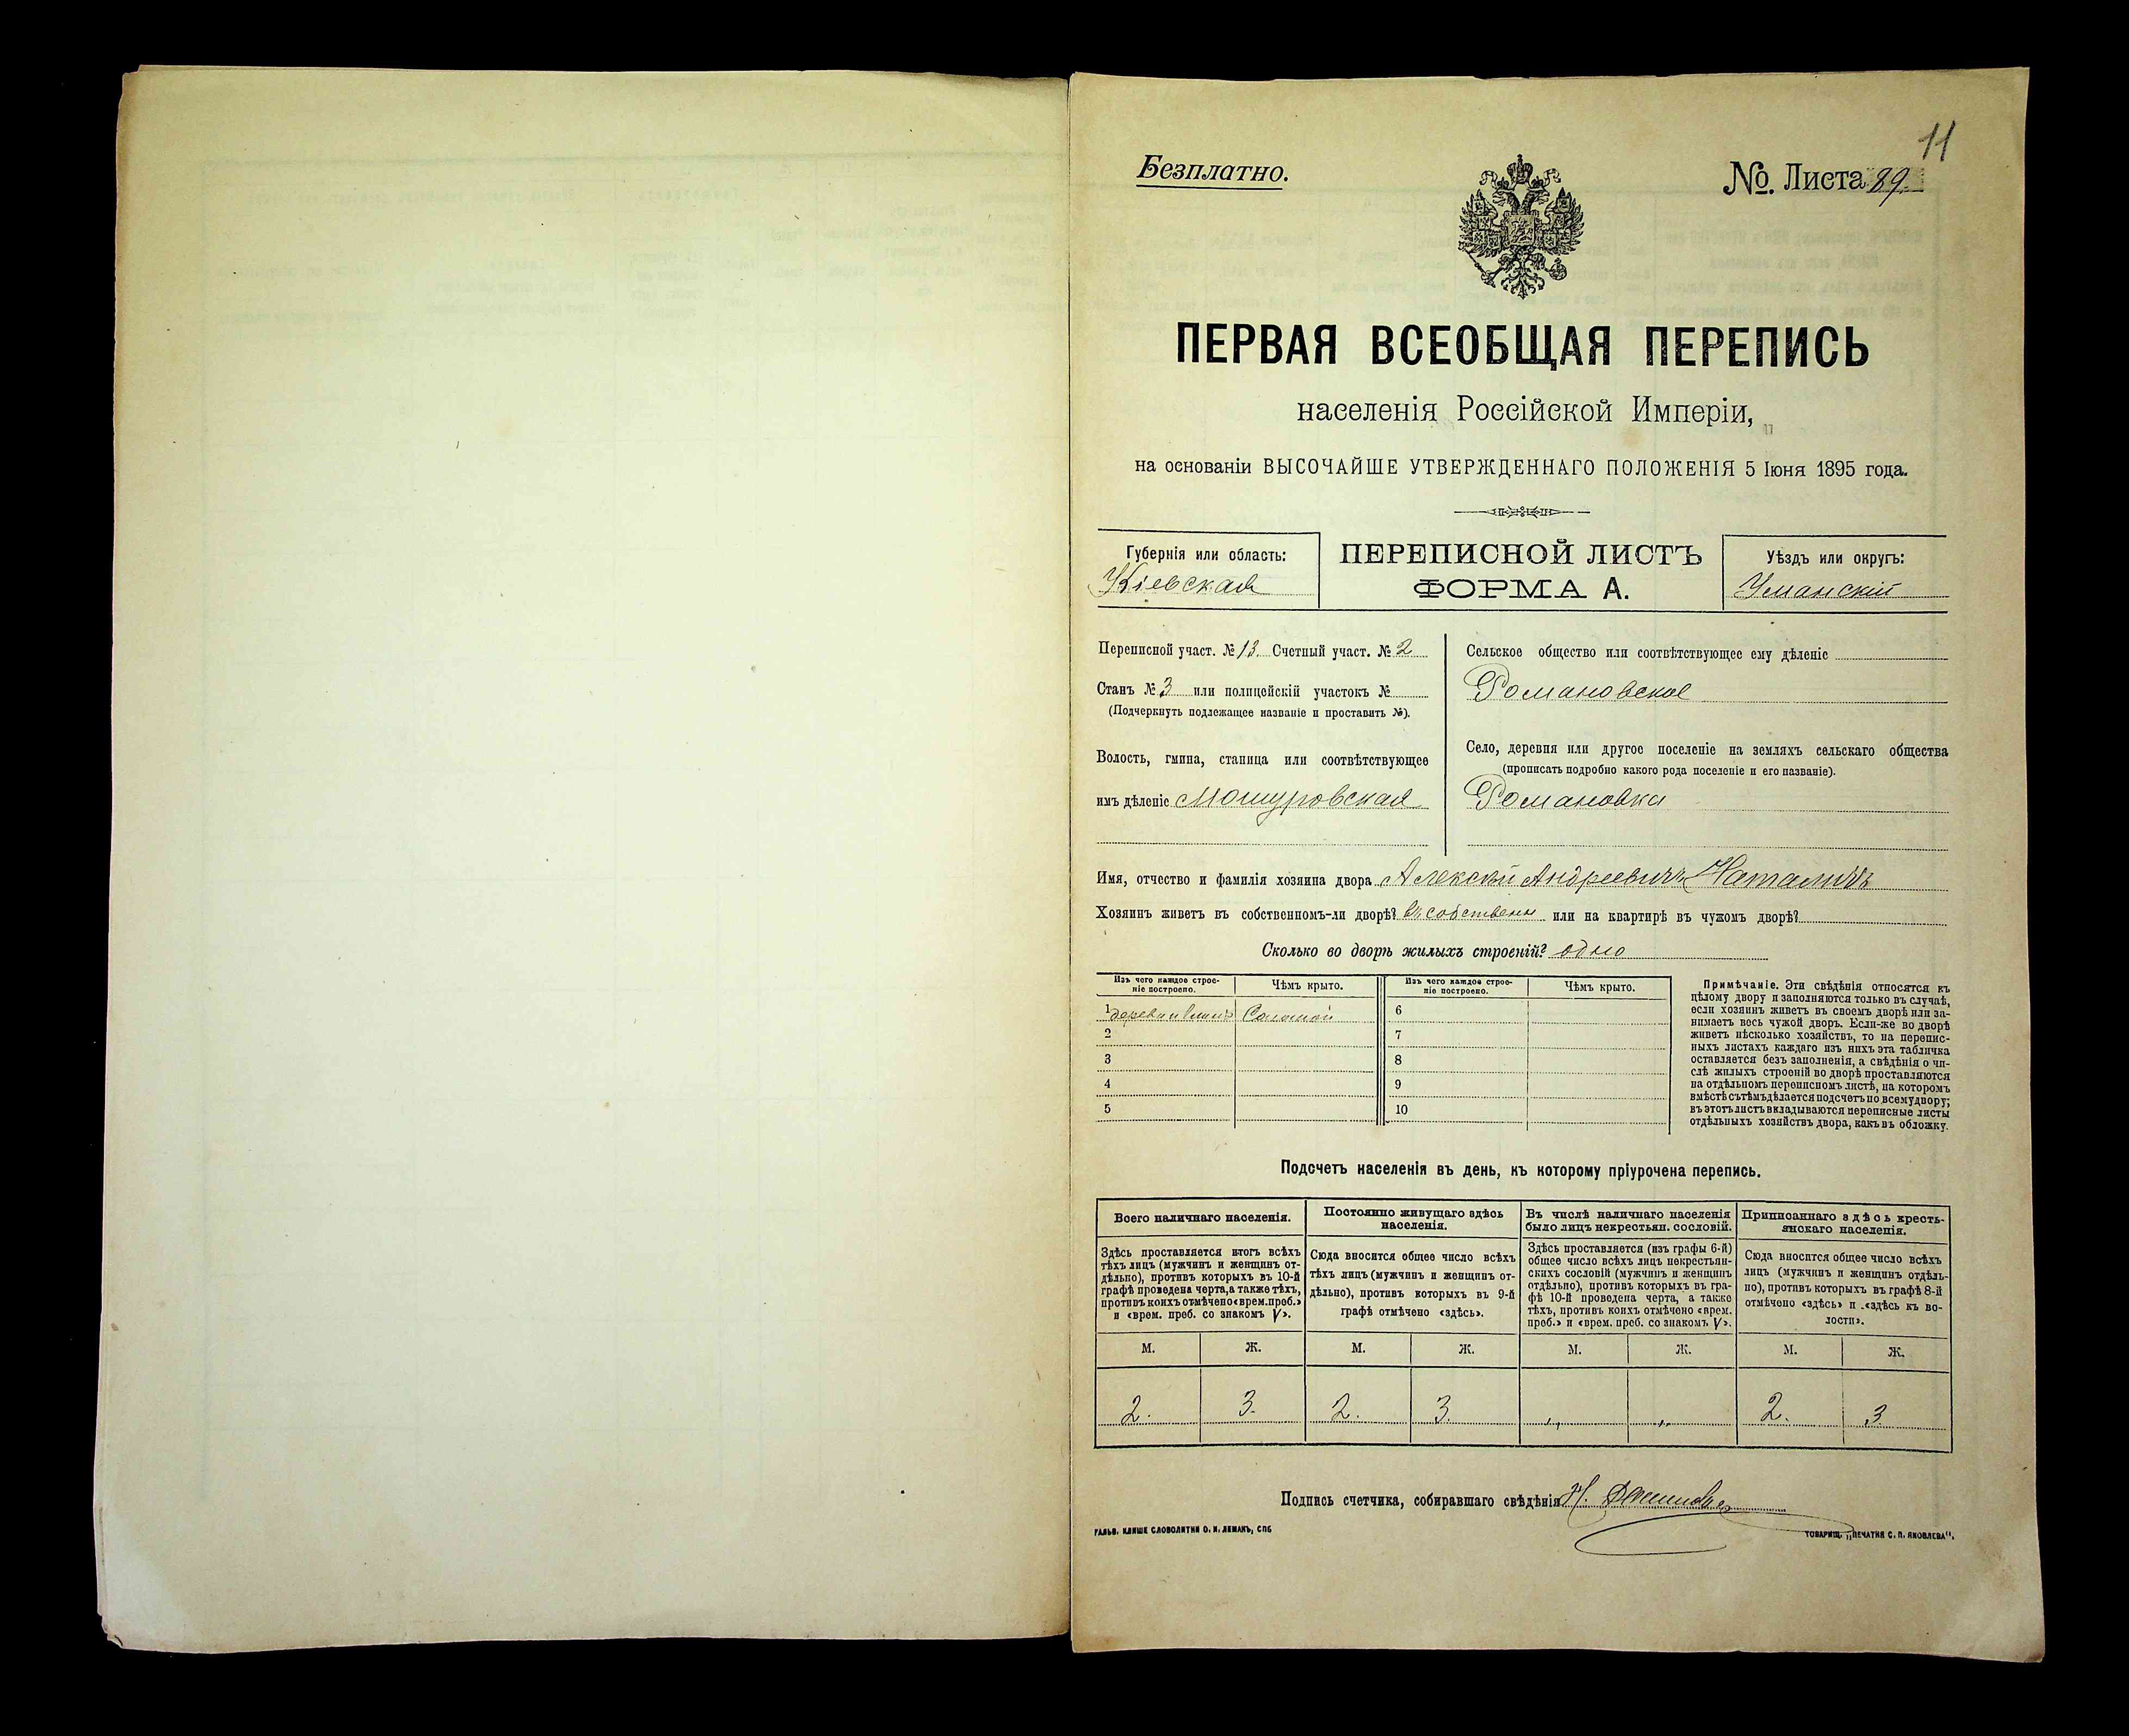 11
Безплатно.
№. Листа 89.
ПЕРВАЯ ВСЕОБЩАЯ ПЕРЕПИСЬ
населенія Россійской Имперіи,
на основаніи ВЫСОЧАЙШЕ УТВЕРЖДЕННАГО ПОЛОЖЕНІЯ 5 Іюня 1895 года.
Губернія или область:
Кіевская
ПЕРЕПИСНОЙ ЛИСТЪ
ФОРМА А.
Уѣздъ или округъ:
Уманскій
Переписной участ. № 13. Счетный участ. № 2
Станъ № 3 или полицейскій участокъ №
(Подчеркнуть подлежащее названіе и проставить №).
Волость, гмина, станица или соотвѣтствующее
имъ дѣленіе Мошуровская
Сельское общество или соотвѣтствующее ему дѣленіе
Романовское
Село, деревня или другое поселеніе на земляхъ сельскаго общества
(прописать подробно какого рода поселеніе и его названіе).
Романовка
Имя, отчество и фамилія хозяина двора Алексѣй Андреевичъ
Хозяинъ живетъ въ собственномъ-ли дворѣ? въ собственн или на квартирѣ въ чужомъ дворѣ?
Сколько во дворѣ жилыхъ строеній? одно
Изъ чего каждое строе-
ніе построено.
Чѣмъ крыто.
Изъ чего каждое строе-
ніе построено.
Чѣмъ крыто.
1 Соломой
2
3
4
5
6
7
8
9
10
Примѣчаніе. Эти свѣдѣнія относятся къ
цѣлому двору и заполняются только въ случаѣ,
если хозяинъ живетъ въ своемъ дворѣ или за-
нимаетъ весь чужой дворъ. Если-же во дворѣ
живетъ нѣсколько хозяйствъ, то на перепис-
ныхъ листахъ каждаго изъ нихъ эта табличка
оставляется безъ заполненія, а свѣдѣнія о чи-
слѣ жилыхъ строеній во дворѣ проставляются
на отдѣльномъ переписномъ листѣ, на которомъ
вмѣстѣ съ тѣмъ дѣлается подсчетъ по всему двору;
въ этотъ листъ вкладываются переписные листы
отдѣльныхъ хозяйствъ двора, какъ въ обложку.
Подсчетъ населенія въ день, къ которому пріурочена перепись.
Всего наличнаго населенія.
Здѣсь проставляется итогъ всѣхъ
тѣхъ лицъ (мужчинъ и женщинъ от-
дѣльно), противъ которыхъ въ 10-й
графѣ проведена черта, а также тѣхъ,
противъ коихъ отмѣчено «врем. преб.»
и «врем. преб. со знакомъ V».
Постоянно живущаго здѣсь
населенія.
Сюда вносится общее число всѣхъ
тѣхъ лицъ (мужчинъ и женщинъ от-
дѣльно), противъ которыхъ въ 9-й
графѣ отмѣчено «здѣсь».
Въ числѣ наличнаго населенія
было лицъ некрестьян. сословій.
Здѣсь проставляется (изъ графы 6-й)
общее число всѣхъ лицъ некрестьян-
скихъ сословій (мужчинъ и женщинъ
отдѣльно), противъ которыхъ въ гра-
фѣ 10-й проведена черта, а также
тѣхъ, противъ коихъ отмѣчено «врем.
преб.» и «врем. преб. со знакомъ V».
Приписаннаго здѣсь кресть-
янскаго населенія.
Сюда вносится общее число всѣхъ
лицъ (мужчинъ и женщинъ отдѣль-
но), противъ которыхъ въ графѣ 8-й
отмѣчено «здѣсь» и «здѣсь къ во-
лости».
М. Ж. М. Ж. М. Ж. М. Ж.
2. 3. 2. 3. „ „ 2. 3.
Подпись счетчика, собиравшаго свѣдѣнія
ГАЛЬВ. КЛИШЕ СЛОВОЛИТНИ О. И. ЛЕМАНЪ, СПБ
ТОВАРИЩ. „ПЕЧАТНЯ С. П. ЯКОВЛЕВА“.